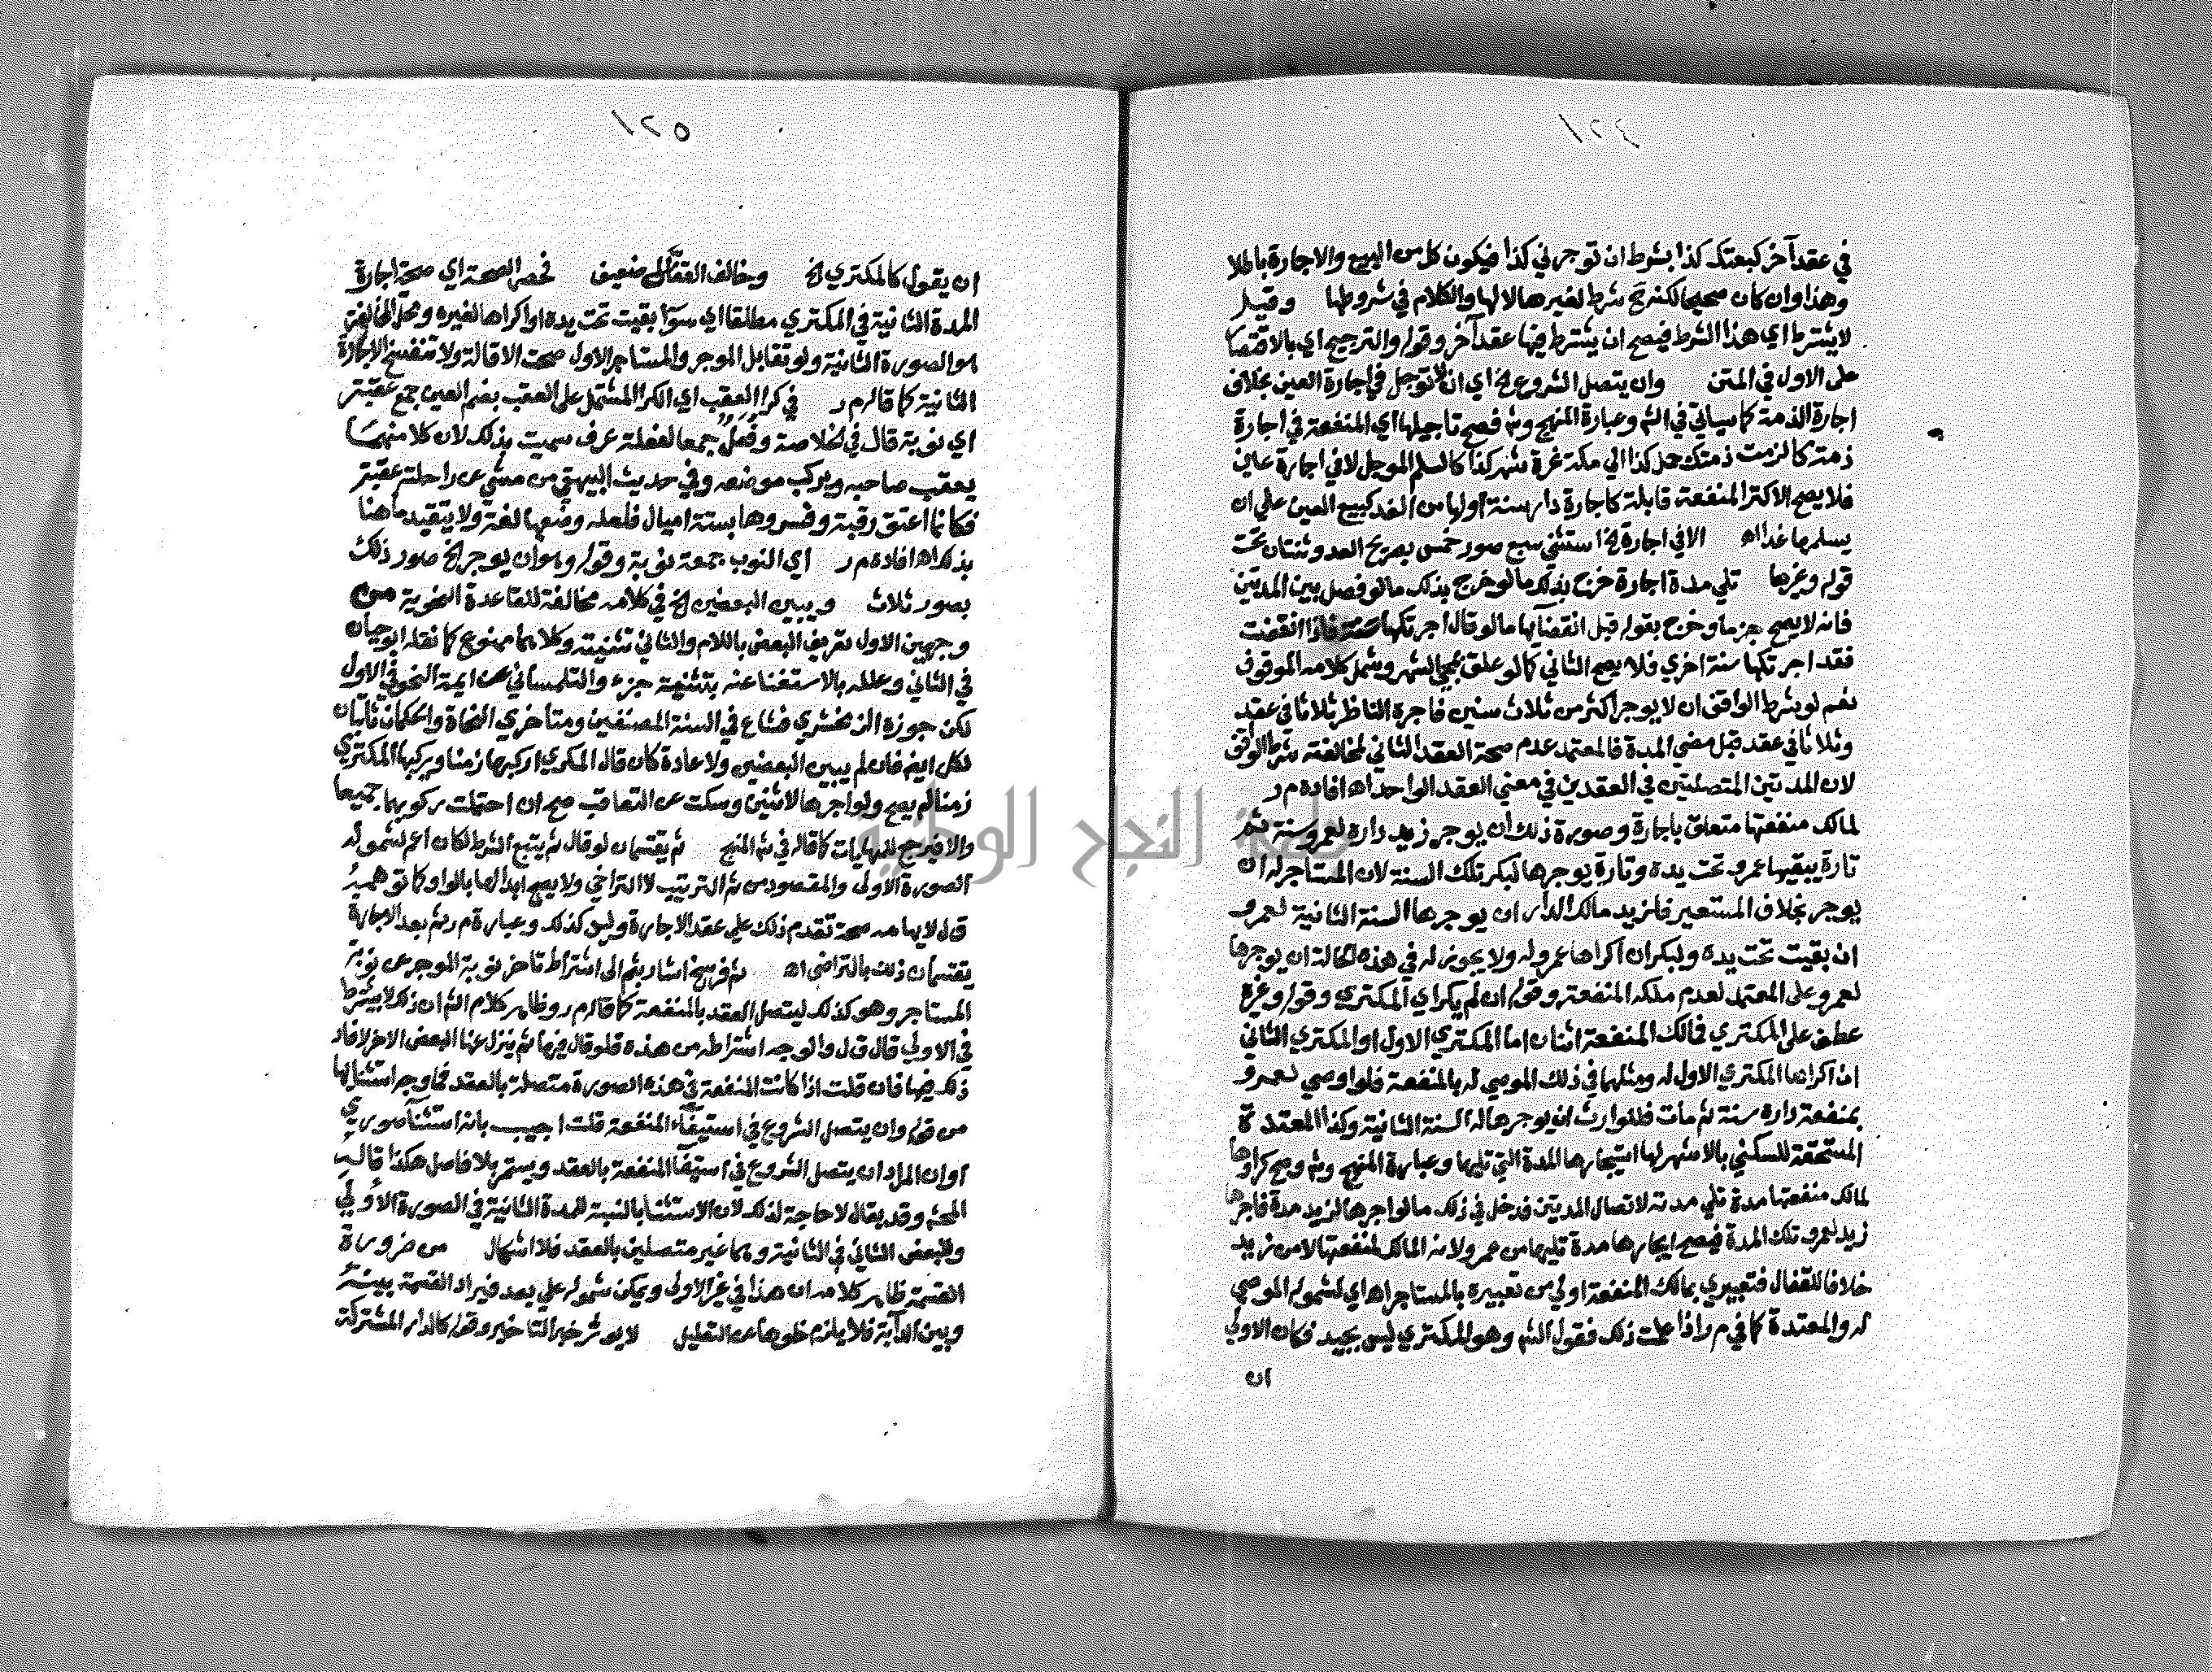 ١٢٤
في عقد آخر كبعتك كذا بشرط ان توجرني كذا فيكون كل من البيع والاجارة باطلا
وهذا وان كان صحيحا لكنه شرط لغيرها لا لها والكلام في شروطها وقيل
لا يشترط اي هذا الشرط فيصح ان يشترط فيها عقد آخر وقوله والترجيح اي بالاقتصا
على الاول في المتن وان يتصل الشروع الخ اي ان لا توجل في اجارة العين بخلاف
اجارة الذمة كما سياتي في الش وعبارة المنهج وش فصح تاجيلها اي المنفعة في اجارة
ذمة كالزمت ذمتك حمل كذا الي مكة غرة شهر كذا كالسلم الموجل لا في اجارة عين
فلا يصح الاكترا لمنفعة قابلة كاجارة دار سنة اولها من الغد كبيع العين علي ان
يسلمها غدا اه الا في اجارة الخ استثني سبع صور خمس بصريح العد وثنتان تحت
قوله وغيرها تلي مدة اجارة خرج بذلك ما لو خرج بذلك ما لو فصل بين المدتين
فانه لا يصح جزما وخرج بقوله قبل انقضآيها ما لو قال اجرتكها سنة فاذا انقضت
فقد اجرتكها سنة اخري فلا يصح الثاني كما لو علق بمجي الشهر وشمل كلامه الموقوف
نعم لو شرط الواقف ان لا يوجر اكثر من ثلاث سنين فاجره الناظر ثلاثا في عقد
وثلاثا في عقد قبل مضي المدة فالمعتمد عدم صحة العقد الثاني لمخالفته شرط الواقف
لان المدتين المتصلتين في العقدين في معني العقد الواحد اه افاده م ر
لمالك منفعتها متعلق باجارة وصورة ذلك ان يوجر زيد داره لعمرو سنة ثم
تارة يبقيها عمرو تحت يده وتارة يوجرها لبكر تلك السنة لان المستاجر له ان
يوجر بخلاف المستعير فلزيد مالك الدار ان يوجرها السنة الثانية لعمرو
ان بقيت تحت يده ولبكر ان اكراها عمرو له ولا يجوز له في هذه الحالة ان يوجرها
لعمرو على المعتمد لعدم ملكه المنفعة وقوله ان لم يكر اي المكتري وقوله وغيره
عطف على المكتري فمالك المنفعة اثنان اما المكتري الاول او المكتري الثاني
ان اكراها المكتري الاول له ومثلهما في ذلك الموصي له بالمنفعة فلو اوصي لعمرو
بمنفعة داره سنة ثم مات فللوارث ان يوجرها له السنة الثانية وكذا المعتدة
المستحقة للسكني بالاشهر لها استيجارها المدة التي تليها وعبارة المنهج وش وصح كراوها
لمالك منفعتها مدة تلي مدته لاتصال المدتين فدخل في ذلك ما لو اجرها لزيد مدة فاجرها
زيد لعمرو تلك المدة فيصح ايجارها مدة تليها من عمرو لانه المالك لمنفعتها لا من زيد
خلافا للقفال فتعبيري بمالك المنفعة اولي من تعبيره بالمستاجر اه اي لشموله الموصي
له والمعتدة كما في م ر اذا علمت ذلك فقول الش وهو للمكتري ليس بجيد فكان الاولي
ان
١٢٥
ان يقول كالمكتري الخ وخالف القفال ضعيف فحصر الصحة اي صحة اجارة
المدة الثانية في المكتري مطلقا اي سوآ بقيت تحت يده او اكراها لغيره ومحل المخالفة
هو الصورة الثانية ولو تقايل الموجر والمستاجر الاول صحت الاقالة ولا تنفسخ الاجارة
الثانية كما قاله م ر في كرا العقب اي الكرا المشتمل على العقب بضم العين جمع عقبة
اي نوبة قال في الخلاصة وفعل جمعا لفعلة عرف سميت بذلك لان كلا منهما
يعقب صاحبه ويركب موضعه وفي حديث البيهقي من مشي عن راحلته عقبة
فكانما اعتق رقبة وفسروها بستة اميال فلعله وضعها لغة ولا يتقيد ما هنا
بذلك اه افاده م ر اي النوب جمعه نوبة وقوله وهو ان يوجر الخ صور ذلك
بصور ثلاث ويبين البعضين الخ في كلامه مخالفة للقاعدة النحوية من
وجهين الاول تعريف البعض باللام والثاني تثنيته وكلاهما ممنوع كما نقله ابو حيان
في الثاني وعلله بالاستغنا عنه بتثنية جزء والتلمساني عن ايمة النحو في الاول
لكن جوزه الزمخشري فشاع في السنة المصنفين ومتاخري النحاة والحكمان ثابتان
لكل ايض فان لم يبين البعضين ولا عادة كان قال المكري اركبها زمنا ويركبها المكتري
زمنا لم يصح ولو اجرها لاثنين وسكت عن التعاقب صح ان احتملت ركوبهما جميعا
والا فيرجع للمهايات كما قاله في ش المنهج ثم يقتسمان لو قال ثم يتبع الشرط لكان اعم لشموله
الصورة الاولى والمقصود من ثم الترتيب لا التراخي ولا يصح ابدالها بالواو كما توهمه
ق ل لايهامه صحة تقدم ذلك علي عقد الاجارة وليس كذلك وعبارة م ر ثم بعد الاجارة
يقتسمان ذلك بالتراضي اه ثم فرسخ اشار بثم الى اشتراط تاخر نوبة الموجر عن نوبة
المستاجر وهو كذلك ليتصل العقد بالمنفعة كما قاله م ر وظاهر كلام الش ان ذلك لا يشترط
في الاولي قال ق ل والوجه اشتراطه من هذه فلو قال فيها ثم ينزل عنها البعض الاخر لافاد
ذلك فيها فان قلت اذا كانت المنفعة في هذه الصورة متصلة بالعقد فما وجه استثنايها
من قوله وان يتصل الشروع في استيفآء المنفعة قلت اجيب بانه استثنآ صوري
او ان المراد ان يتصل الشروع في استيفآ المنفعة بالعقد ويستمر بلا فاصل هكذا قاله
المحشي وقد يقال لا حاجة لذلك لان الاستثنا بالنسبة للمدة الثانية في الصورة الاولي
وللبعض الثاني في الثانية وهما غير متصلين بالعقد فلا اشكال من ضرورة
القسمة ظاهر كلامه ان هذا في غير الاولى ويمكن شموله علي بعد فيراد القسمة بينه
وبين الدآبة فلا يلزم خلوها عن التعليل لا يوثر خبر التاخير وقوله كالدار المشتركة
جامعة النجاح الوطنية